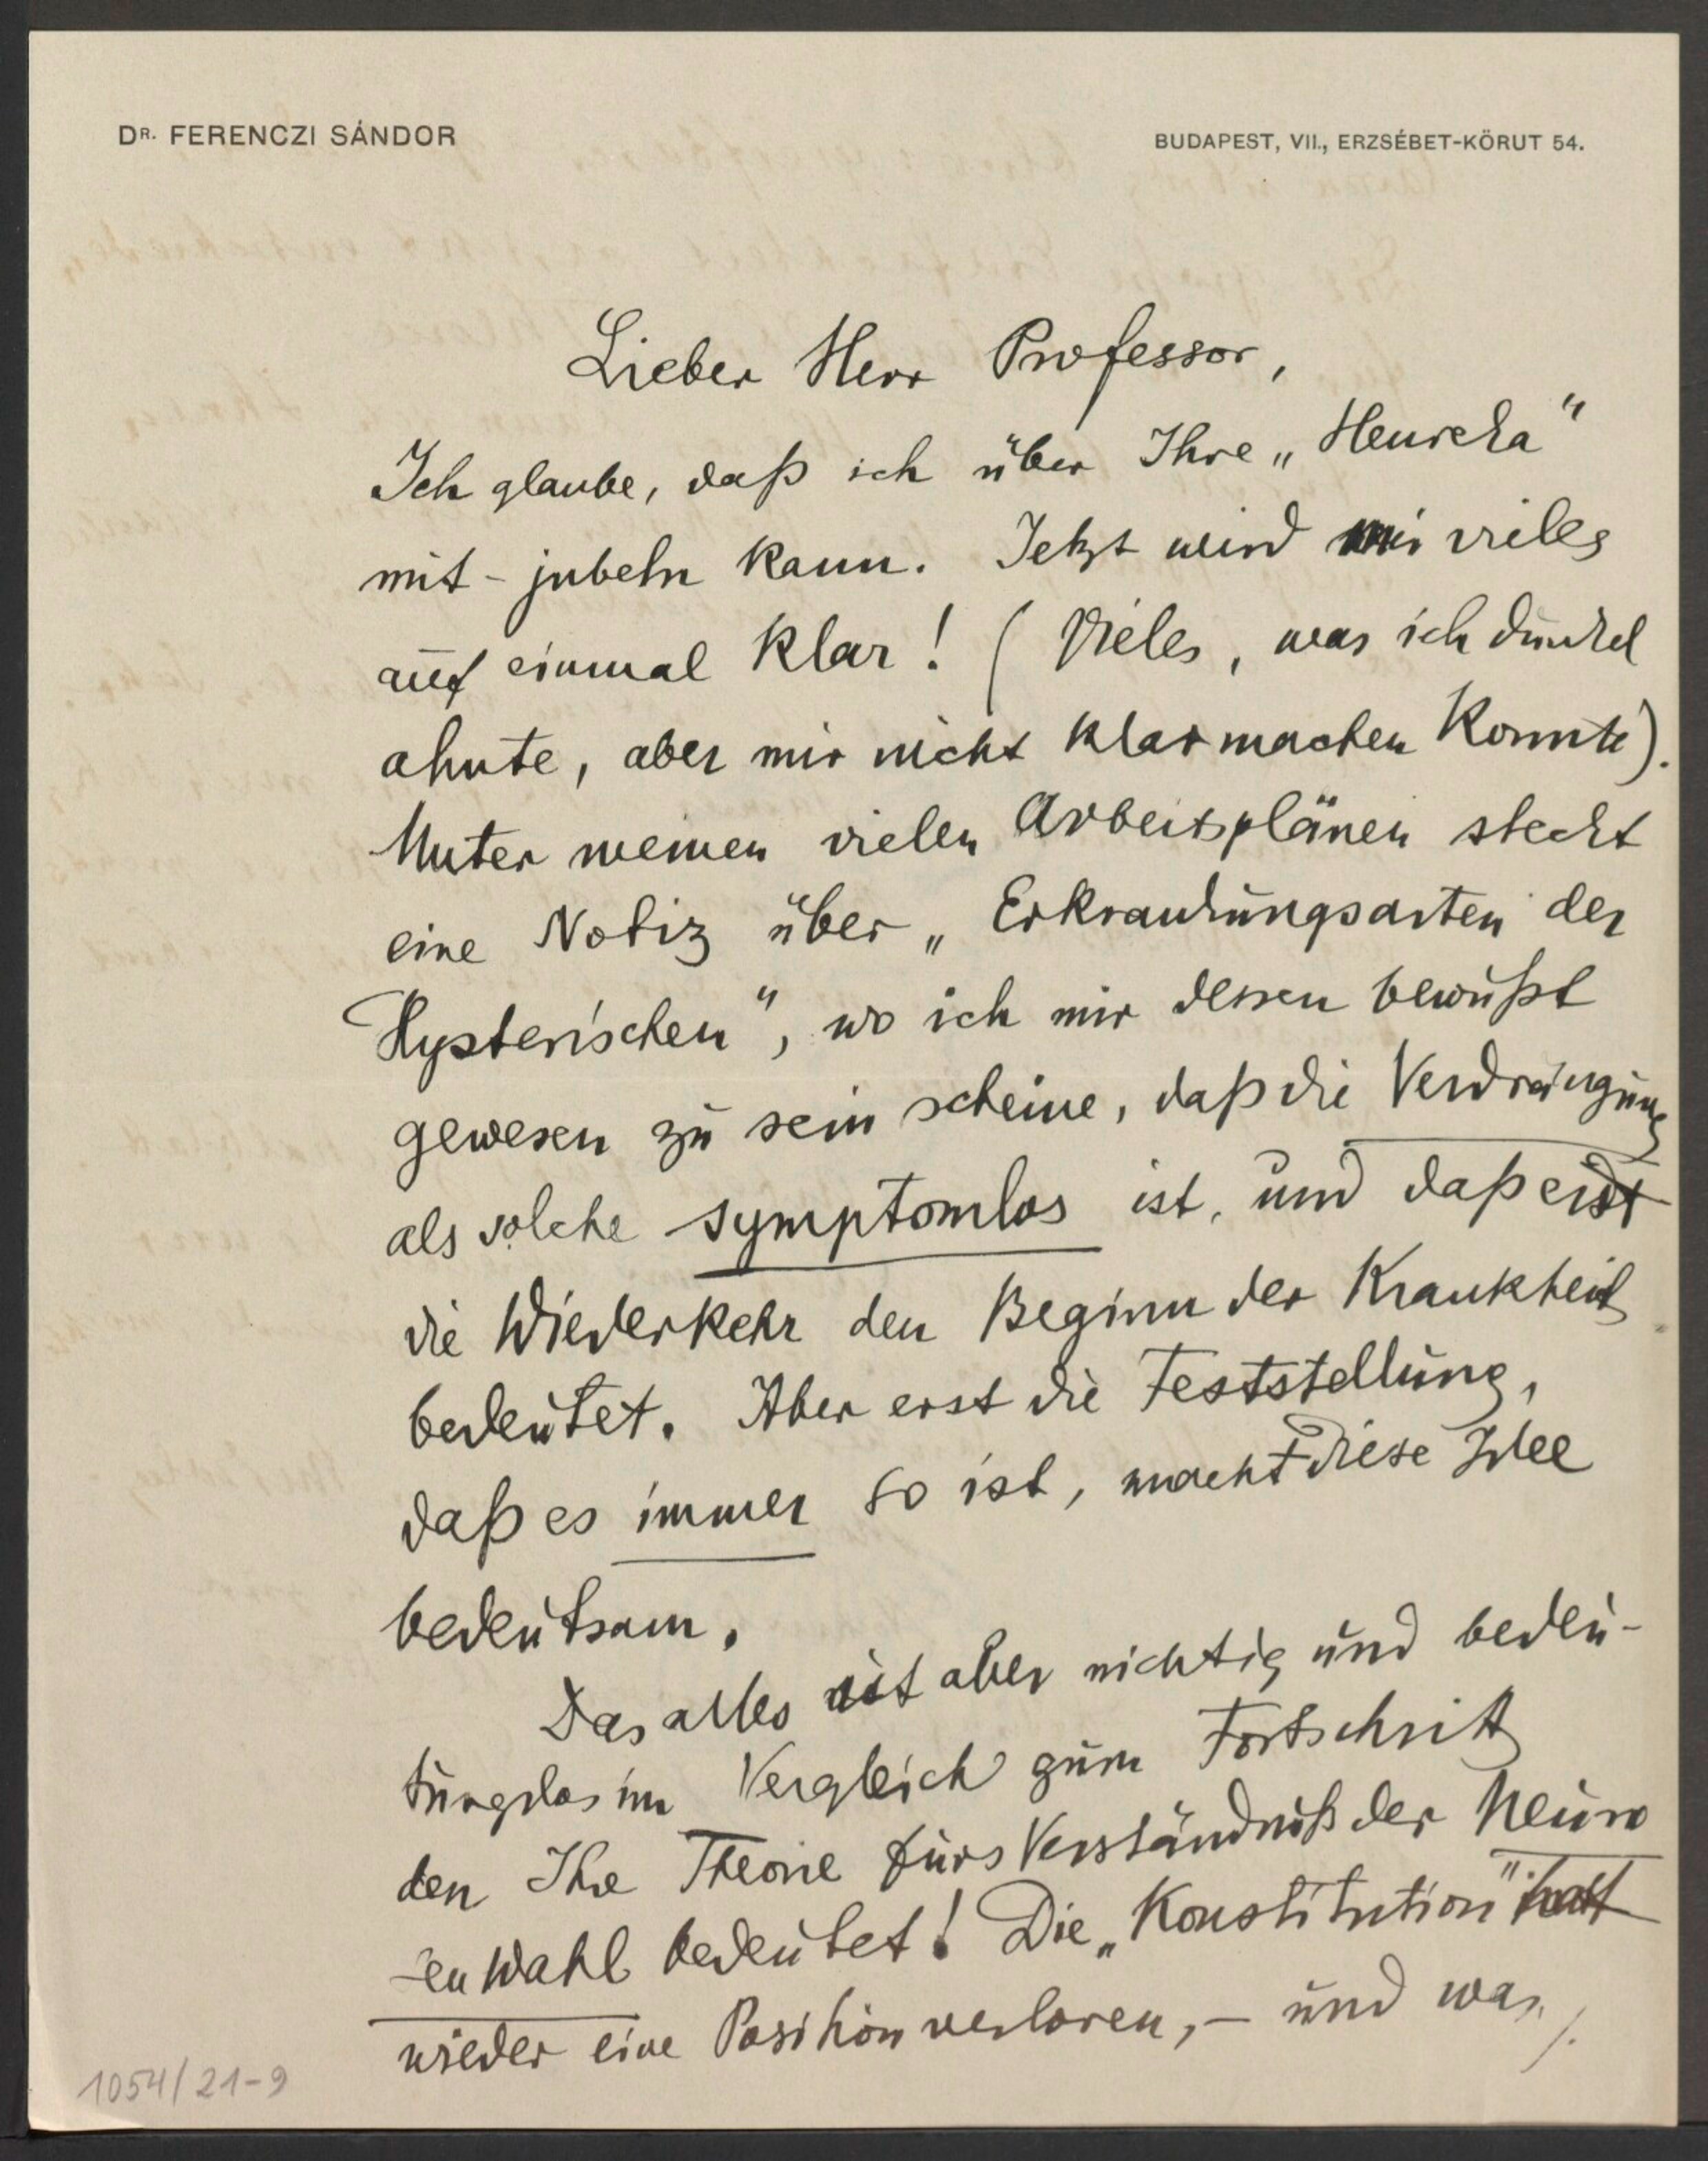 DR. FERENCZI SÁNDOR
BUDAPEST, VII., ERZSÉBET-KÖRUT 54.
Lieber Herr Professor,
Ich glaube, daß ich über Ihre „Heureka“
mit-jubeln kann. Jetzt wird mir vieles
auf einmal klar! (Vieles, was ich dunkel
ahnte, aber mir nicht klar machen konnte).
Unter meinen vielen Arbeitsplänen steckt
eine Notiz über „Erkrankungsarten der
Hysterischen“, wo ich mir dessen bewußt
gewesen zu sein scheine, daß die Verdrängung
als solche symptomlos ist, und daß erst
die Wiederkehr den Beginn der Krankheit
bedeutet. Aber erst die Feststellung,
daß es immer so ist, macht diese Idee
bedeutsam.
Das alles ist aber nichtig und bedeu-
tungslos im Vergleich zum Fortschritt
den Ihre Theorie fürs Verständniß der Neuro
-en Wahl bedeutet! Die „Konstitution“ hat
wieder eine Position verloren, – und was
/.
1054/21-9